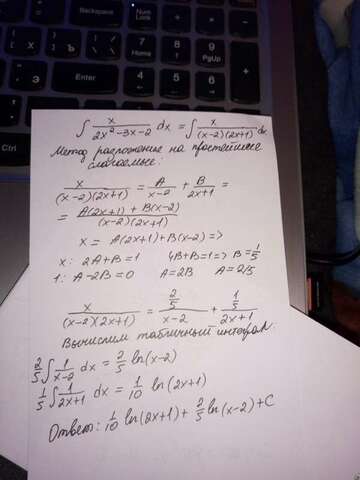 Backspace
Num Lock
7 Home
8
9 PgUp
4
5
6
Enter
1
2
3
Э
Ъ
∫ x/(2x²-3x-2) dx = ∫ x/((x-2)(2x+1)) dx
Метод разложение на простейшие
слагаемые:
x/((x-2)(2x+1)) = A/(x-2) + B/(2x+1) =
= (A(2x+1)+B(x-2))/((x-2)(2x+1))
x = A(2x+1)+B(x-2) =>
x: 2A+B=1 4B+B=1 => B=1/5
1: A-2B=0 A=2B A=2/5
x/((x-2)(2x+1)) = (2/5)/(x-2) + (1/5)/(2x+1)
Вычислим табличный интеграл:
2/5 ∫ 1/(x-2) dx = 2/5 ln(x-2)
1/5 ∫ 1/(2x+1) dx = 1/10 ln(2x+1)
Ответ: 1/10 ln(2x+1) + 2/5 ln(x-2) + C